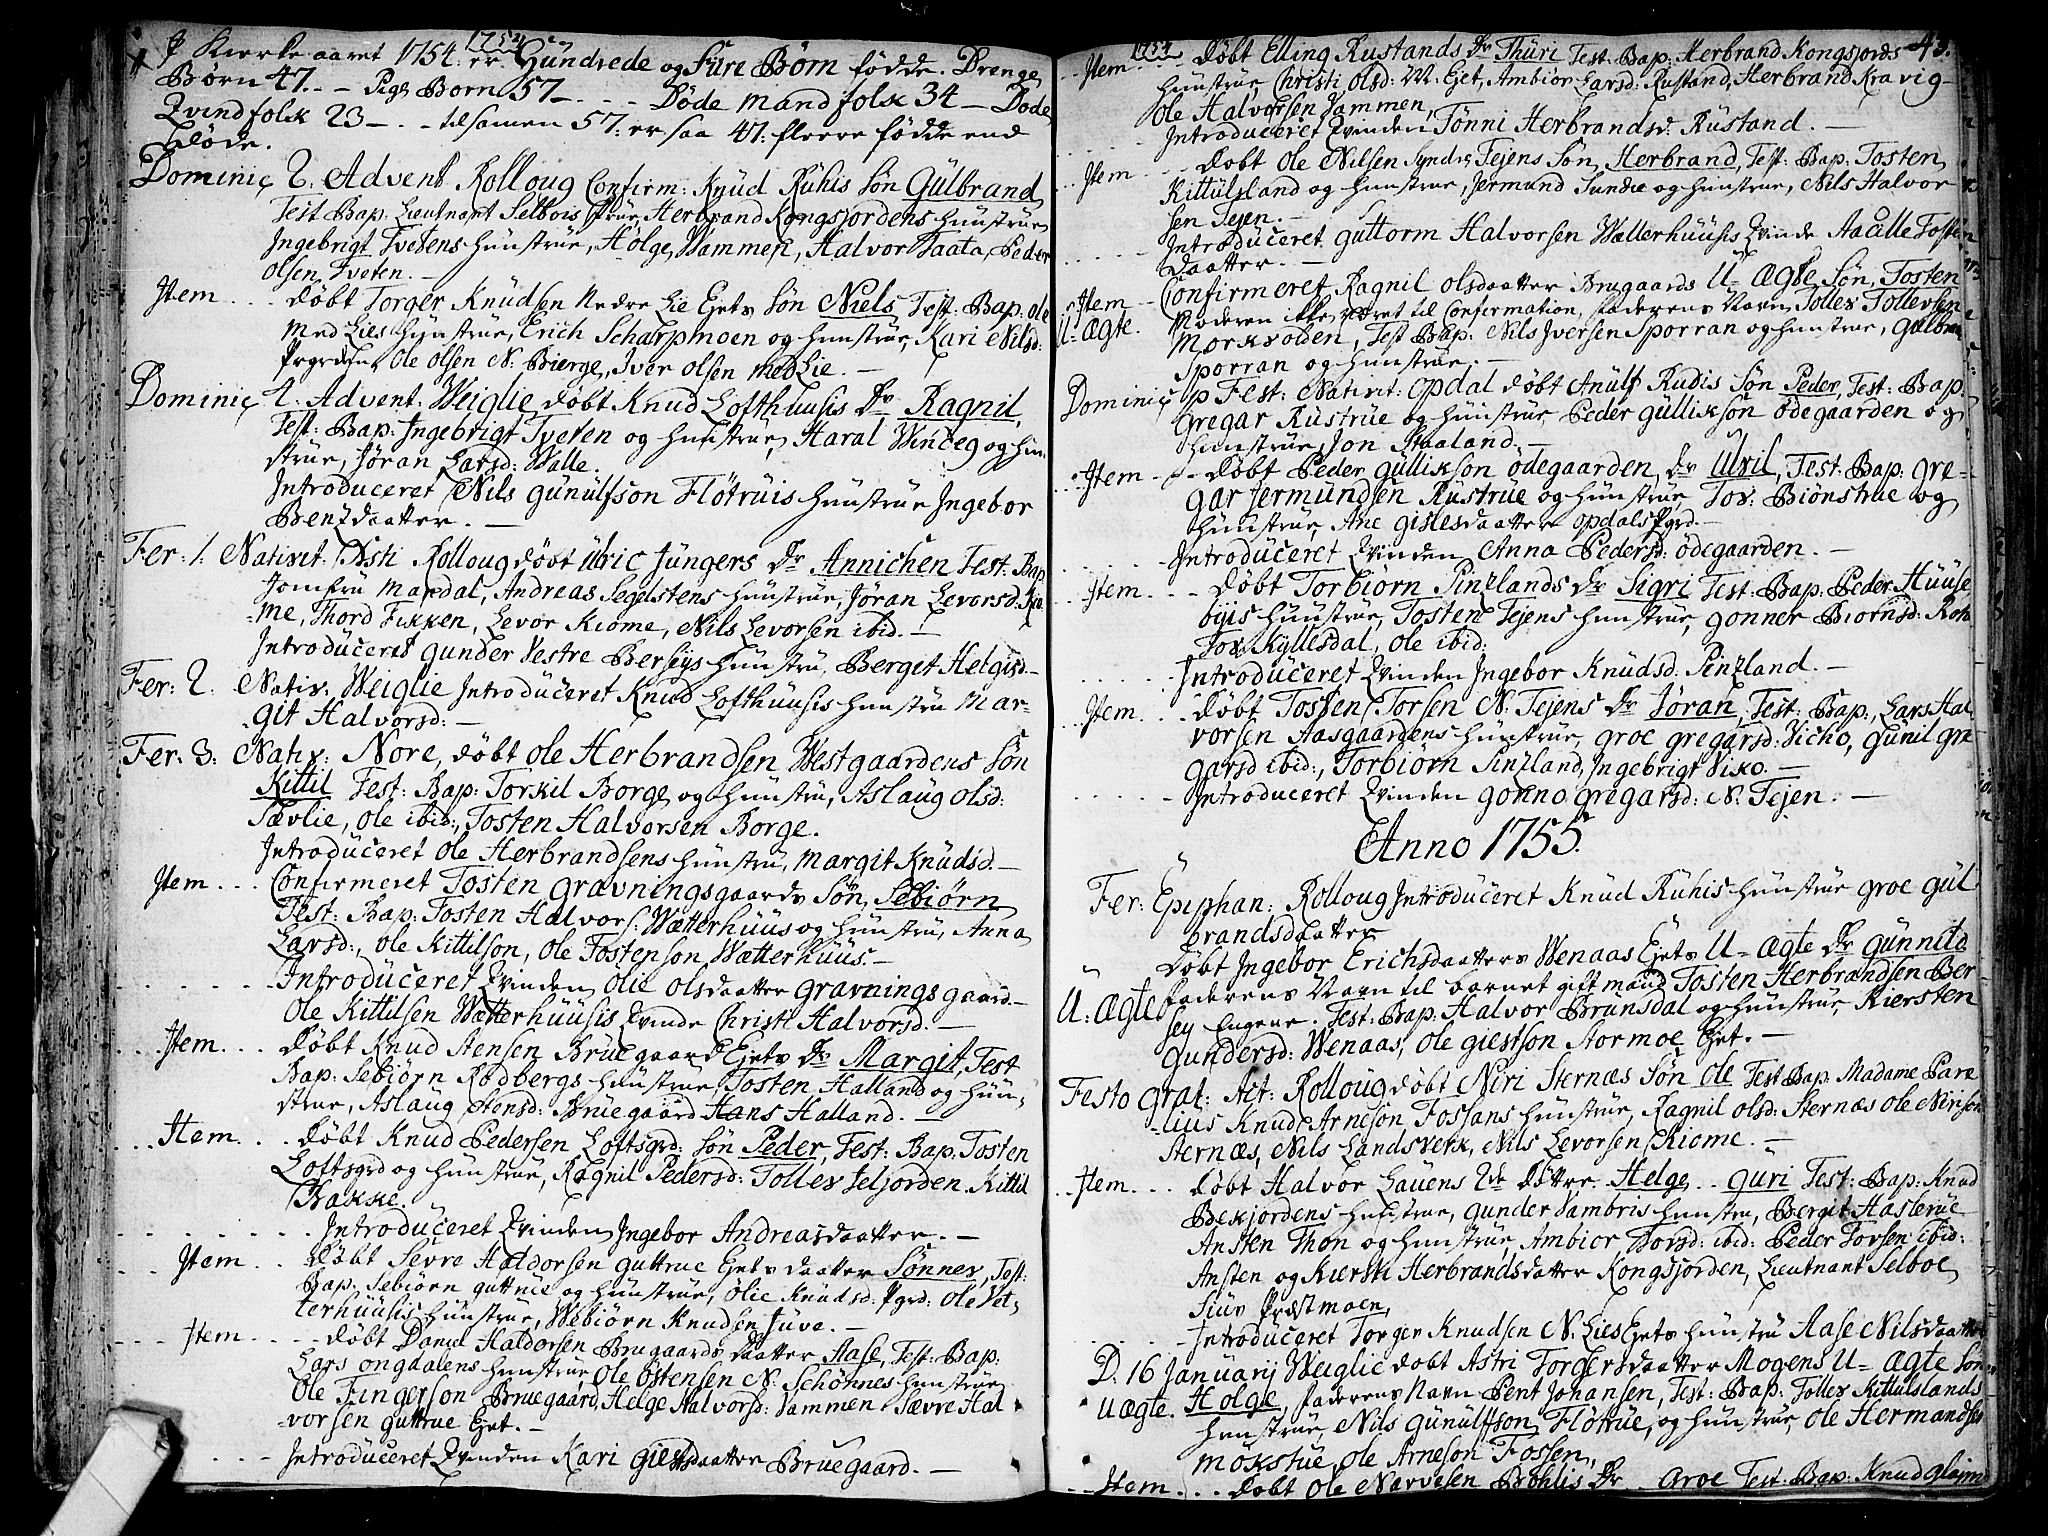 1754
J Kierke aaret 1754 er Hündrede og Füre Børn fødde. Drenge
Børn 47. - - Pige Børn 57 - . - - Døde mandfolk 34 - Døde
Qvindfolk 23 - . - tilsamen 57: er saa 47: fleere fødde end
døde.
Dominic 2. Advent Rolloug Confirm: Knüd Rühis Søn Gülbrand
Test: Bap: Lieutnant Selbois frue, Herbrand Kongsjordens hustrue
Ingebrigt Tvetens hustrue, Hølge Wammen, Halvor Taata, Peder
olsen Tveten. -
Item . . . . døbt Torger Knudsen Nedre Lie Ejets Søn Niels Test: Bap: ole
Med Lies hustrue, Erich Scharpmoen og hustrue, Kari Nilsd:
Prgrden, Ole Olsen N. Bierge, Iver olsen medLie. -
Dominic 2. Advent. Weiglie døbt Knud Lofthuusis Dr Ragnil,
Test: Bap: Ingebrigt Tveten og hustrue, Haral Winceg og hu-
strue, Jøran Larsd: Walle.
Introduceret Nils Günülfson Fløtruis hustrue Ingebor
Bentzdaatter. -
Fer: 1. Nativit: Xsti Rolloug døbt Ülric Jüngers Dr Annichen Test: Bap
Jomfru Mandal, Andreas Segelstens hustrue, Jøran Levorsd: Kio
me, Thord Fikken, Levor Kiome, Nils Levorsen ibid. -
Introduceret gunder Vestre Berseys hustru, Bergit Helgisd. -
Fer: 2. Nativ. Weiglie Introduceret Knud Lofthuusis hustru Mar-
git Halvorsd: -
Fer: 3. Nativ: Nore, døbt ole Herbrandsen Westgaardens Søn
Kittil Test: Bap: Torkil Borge og hustru, Aslaug olsd:
Tævlie, ole ibid:, Tosten Halvorsen Borge.
Introduceret Ole Herbrandsens hustru, Margit Knüdsd. -
Item . . . Confirmeret Tosten gravningsgaards Søn, Sebiørn
Test: Bap: Tosten Halvors: Wætterhuus og hustru, Anna
Larsd:, ole Kittilson, ole Tostenson Wætterhuus. -
Introduceret Qvinden Olie olsdaatter gravningsgaard. -
Ole Kittilsen Wætterhuusis Qvinde Christi Halvorsd. -
Item . . . døbt Knud Stensen Bruegaard Ejets Dr Margit, Test
Bap: Sebiørn Rødbergs hustrue, Tosten Halland og huu-
strue, Aslaug Stensd: Bruegaard Hans Halland. -
Item . . . døbt Knud Pedersen Loftsgrd: Søn Peder, Test: Bap: Tosten
Loftsgrd og hustrue, Ragnil Pedersd: Tollev Seljorden Kittil
Bakke.
Introduceret Qvinden Ingebor Andreasdaatter. -
Item . . . døbt Sevre Haldorsen guttrue Ejets daatter Sønnev, Test:
Bap: Sebiørn guttrue og hustrue, Olie Knudsd: Pgrd: Ole Vet-
terhuusis hustrue, Webiørn Knudsen Juve. -
Item . . . døbt Daniel Haldorsen Bruegaards daatter Aase, Test: Bap:
Lars ongdalens hustrue Ole Østensen N. Schønnes hustrue
Ole Fingerson Bruegaard, Helge Halvorsd: Wammen Sævre Hal
vorsen guttrue Ejet. -
Introduceret Qvinden Kari Giestsdaatter Bruegaard. -
1754 43.
Item . . . døbt Elling Rustands Dr Thüri Test: Bap: Herbrand Kongsjords
hustrue, Christi olsd: M: Ejet, Ambiør Larsd: Rustand, Herbrand Kravig-
ole Halvorsen Wammen,
Introduceret Qvinden Tønni Herbrandsd. Rüstand. -
Item . . . døbt Ole Nilsen Syndre Tejens Søn, Herbrand, Test: Bap: Tosten
Kittülsland og hustrue, Jermund Sundie og hustrue, Nils Halvor
sen Tejen. -
Introdüceret Guttorm Halvorsen Wætterhuusis Qvinde Aacille Tosten
daatter. -
Item - Confirmeret Ragnil olsdaatter Bruegaards U-Ægte Søn, Tosten
U: Ægte. Moderen ikke været til Confirmation, faderens Navn Tollev Tollevsen
Morkvolden, Test Bap: Nils Iversen Sporran og hustrue, Gülbran
Sporran og hustrue. -
Dominic p Fest: Nativit: Opdal døbt Anülf Rudis Søn Peder, Test: Bap:
Gregar Rustrüe og hustrue, Peder Gülliksøn ødegaarden og
hustrue, Jon Staaland. -
Item . - . døbt Peder Gülliksøn Ødegaarden, Dr Ulvil, Test: Bap: Gre-
gar Jermündsen Rüstrüe og hustrue, Tov. Biønstrue og
hustrue, Ane Gislesdaatter opdals Pgrd. -
Introdüceret Qvinden Anna Pedersd: Ødegaarden. -
Item . . . døbt Torbiørn Pintzlands Dr Sigri Test: Bap: Peder Hüüse
byis hustrue, Tosten Tejens hustrue, Gonner Biørnsd:
Tov Kyllesdal, Ole ibid:
Introdüceret Qvinden Ingebor Knüdsd. Pintzland. -
Item . . . døbt Tosten Torsen N. Tejens Dr Jøran, Test: Bap:, Lars Hal
vorsen Aasgaardens hustrue, Groe Gregarsd: Vicho, Gunil Gre
garsd ibid:, Torbiørn Pintzland, Ingebrigt Viko. -
Introdüceret Qvinden Gonno Gregarsd: N. Tejen. -
Anno 1755.
Fer: Epiphan: Rolloug Introdüceret Knud Rühis hustrue Groe Gül
brandsdaatter
Døbt Ingebor Erichsdaatters Wenaas Ejets U-Ægte Dr Günnild
U: Ægte faderens Navn til barnet gift mand Tosten Herbrandsen Ber
sey Engene. Test: Bap: Halvor Brünsdal og hustrue, Kiersten
Gundersd: Wenaas, Ole Giestson Stormoe Ejet. -
Festo Grat: Act: Rolloug døbt Niri Sternæs Søn Ole Test Bap: Madame Pare
lius Knud Arneson Fossans hustrue, Ragnil olsd: Sternæs ole Nirison
Sternæs, Nils Landsverk, Nils Levorsen Kiome. -
Item . . . døbt Halvor Lauens 2de døttre Helge . . Güri Test: Bap: Knud
Bekjordens hustrue, Gunder Sambris hustru, Bergit Hasterüe
Ansten Thon og hustrue, Ambior Torsd: ibid: Peder Torsen ibid:
Ansten og Kiersti Herbrandsdatter Kongsjorden, Lieutnant Selboe
Siuv Præstmoen,
Introdüceret Torger Knudsen N. Lies Ejets hustru Aase Nilsdaatter
D: 16 Januarij Weiglie døbt Astri Torgersdaatter Mogens U-Ægte Søn
UÆgte. Hølge, faderens Navn Pent Johansen, Test: Bap: Tollev Kittülslands
hustrue, Nils Günülfson Fløtrüe, og hustrue, Ole Hermandsen
Mokstüe, ole Arneson Fossen,
Item . . . døbt Ole Narvesen Bøhlis Dr Groe Test: Bap: Knud Glaim